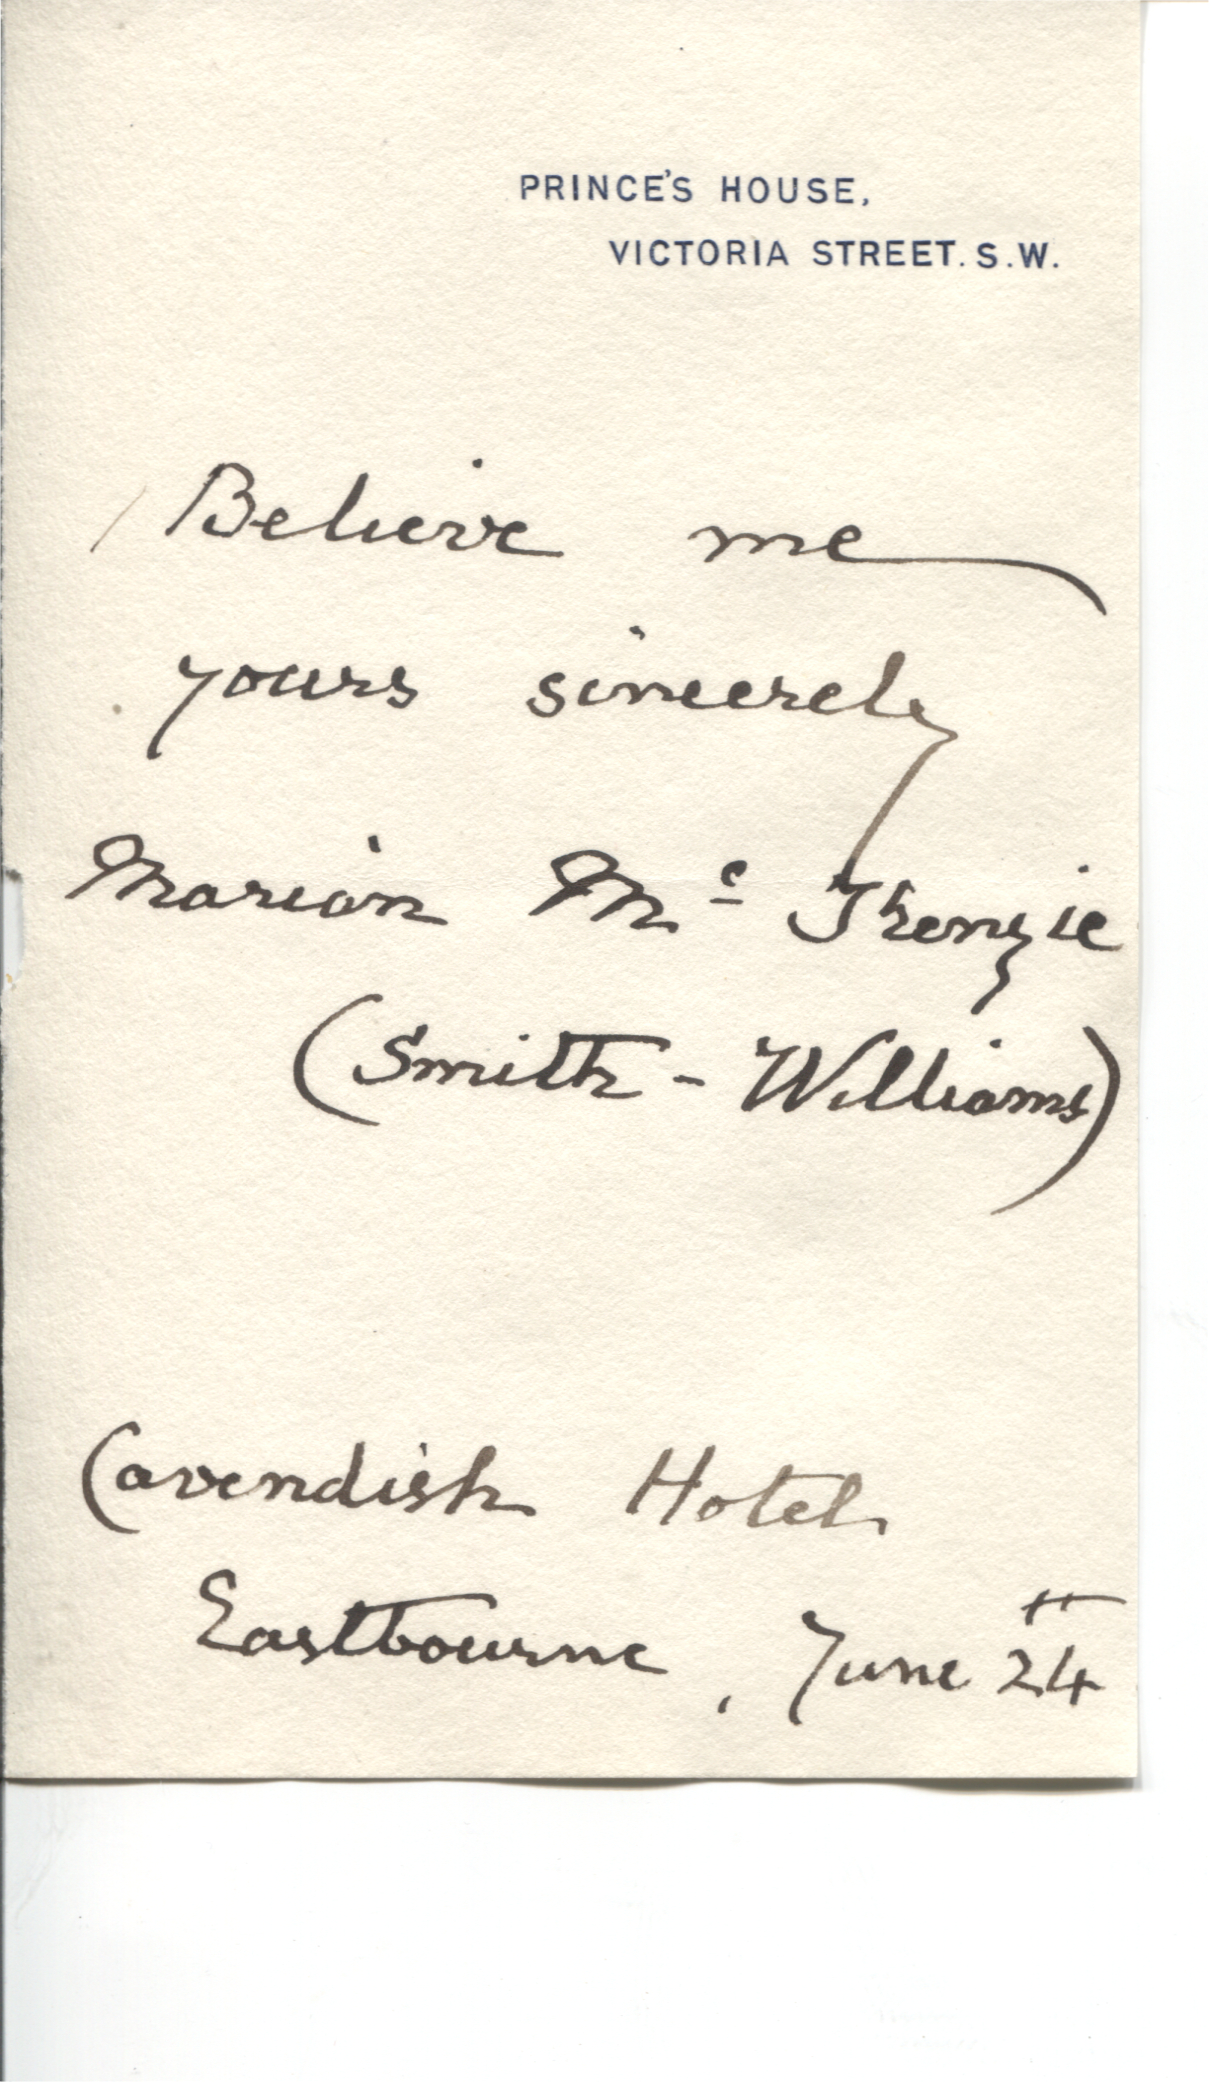 PRINCE'S HOUSE,
VICTORIA STREET. S.W.
Believe me
yours sincerely
Marian Mc Kenzie
(Smith - Williams)
Cavendish Hotel
Eastbourne, June 24th